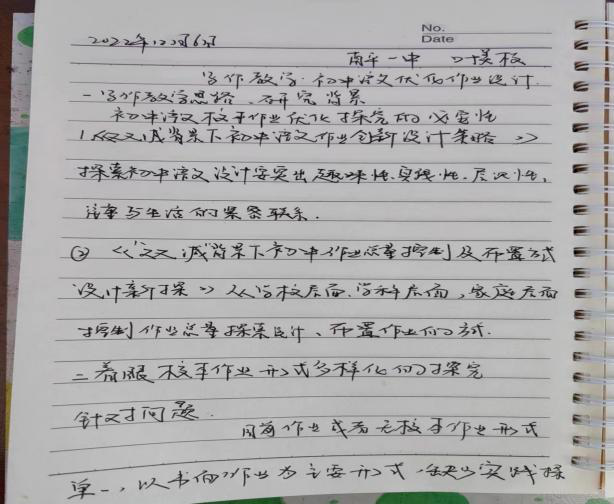 No.
Date
2022年12月6日
南平一中 叶美板
写作教学：初中语文优化作业设计.
一写作教学思路、研究背景
初中语文校本作业优化探究的必要性
1.《双减背景下初中语文作业创新设计策略》
探索初中语文设计要突出趣味性.实践性.层次性,
注重与生活的紧密联系.
② 《双减背景下初中作业总量控制及布置方式
设计新探》从学校层面.学科层面,家庭层面
控制作业总量探索设计、布置作业的方式.
二着眼校本作业形式多样化的探究
针对问题.
目前作业或者无校本作业形式
单一,以书面作业为主要形式,缺少实践探